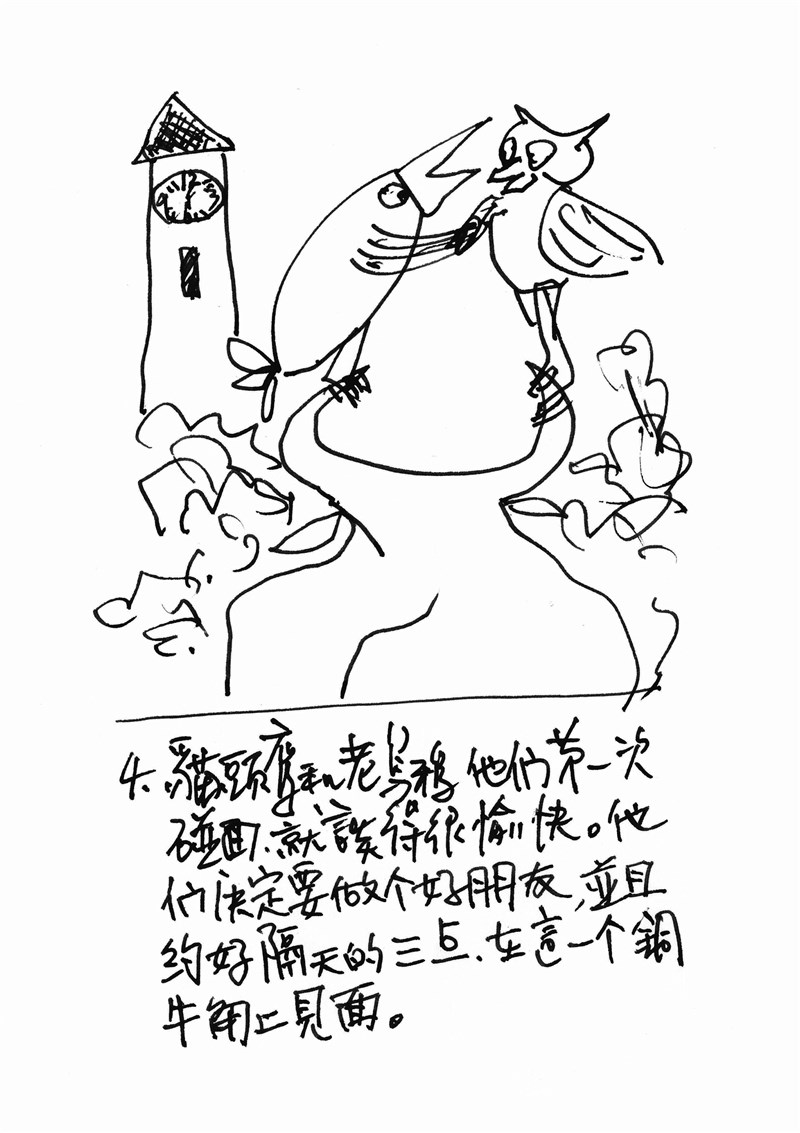 9 12 3
4、貓頭鷹和老烏鴉他们第一次
碰面、就談得很愉快。他
们決定要做个好朋友，並且
約好隔天的三点、在這一个銅
牛角上見面。